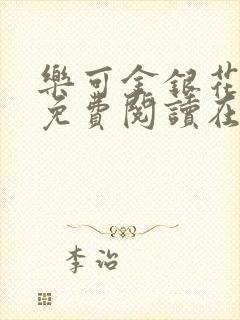 樂可金銀花
免費閱讀在
李治